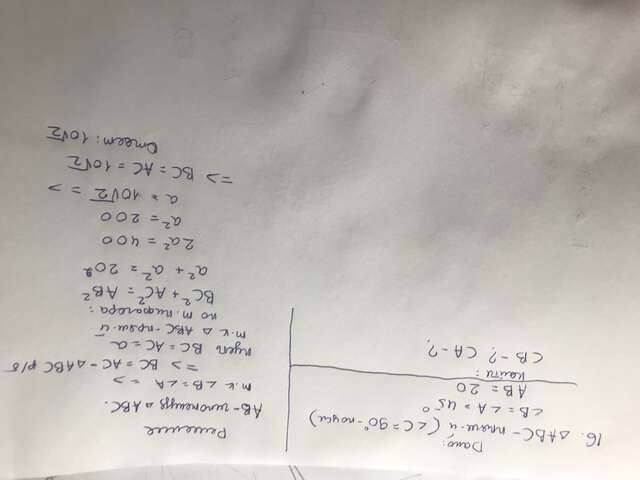 Дано:
16. △ABC - прям-й (∠C = 90° - по усл)
∠B = ∠A = 45°
AB = 20
Найти:
CB - ?, CA - ?
Решение
AB - гипотенуза △ABC.
т.к ∠B = ∠A =>
=> BC = AC - △ABC р/б
пусть BC = AC = a
т.к △ABC - прям-й
по т. пифагора:
BC² + AC² = AB²
a² + a² = 20²
2a² = 400
a² = 200
a = 10√2 =>
=> BC = AC = 10√2
Ответ: 10√2